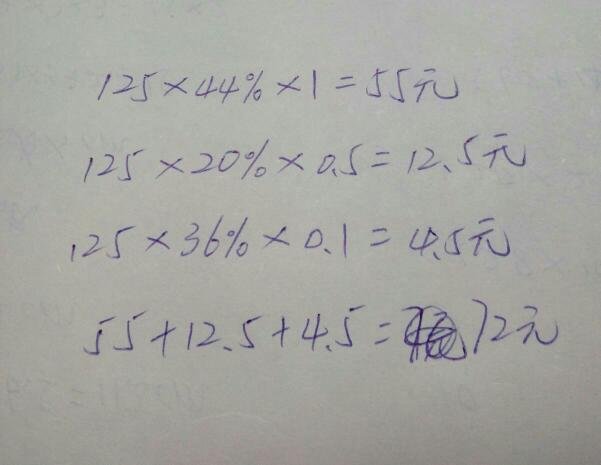 125×44%×1=55元
125×20%×0.5=12.5元
125×36%×0.1=4.5元
55+12.5+4.5=72元